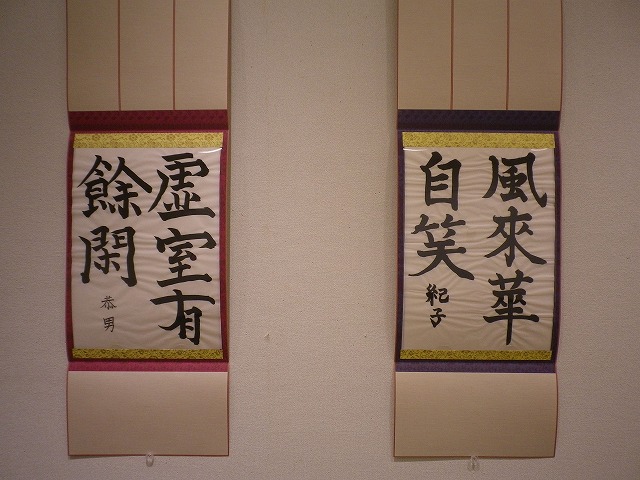 風來華
自笑
紀子
虚室有
餘閑
恭男